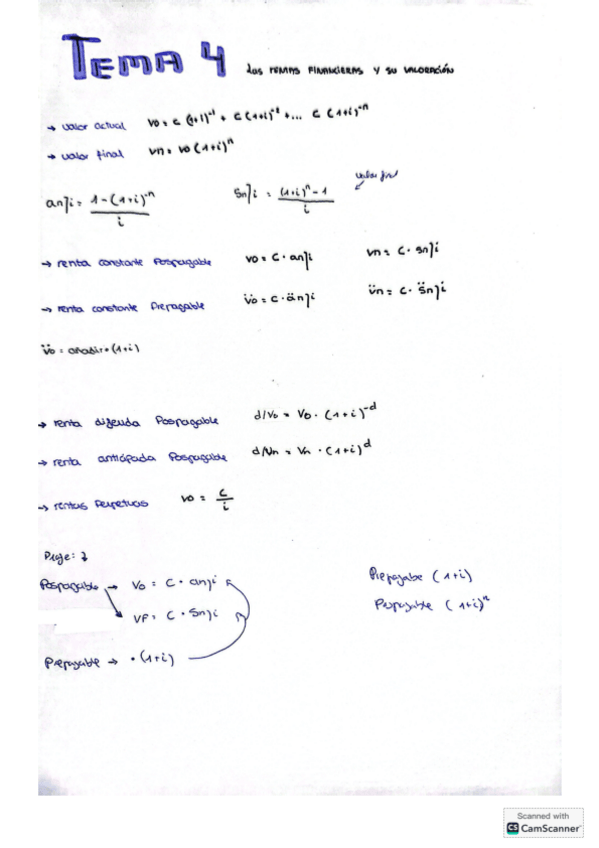 TEMA 4 Las RENTAS FINANCIERAS Y SU VALORACIÓN
→ valor actual Vo = C (1+i)^-1 + C (1+i)^-2 + ... C (1+i)^-n
→ valor final Vn = Vo (1+i)^n
an]i = 1-(1+i)^-n / i Sn]i = (1+i)^n - 1 / i valor final
→ renta constante Pospagable Vo = C · an]i Vn = C · Sn]i
→ renta constante Prepagable V̈o = C · än]i V̈n = C · S̈n]i
V̈o = añadir · (1+i)
→ renta diferida Pospagable d/Vo = Vo · (1+i)^-d
→ renta anticipada Pospagable d/Vn = Vn · (1+i)^d
→ rentas Perpetuas Vo = C / i
Pospagable → Vo = C · an]i Prepagable (1+i)
VF = C · Sn]i Pospagable (1+i)^n
Prepagable → · (1+i)
Scanned with
CS CamScanner